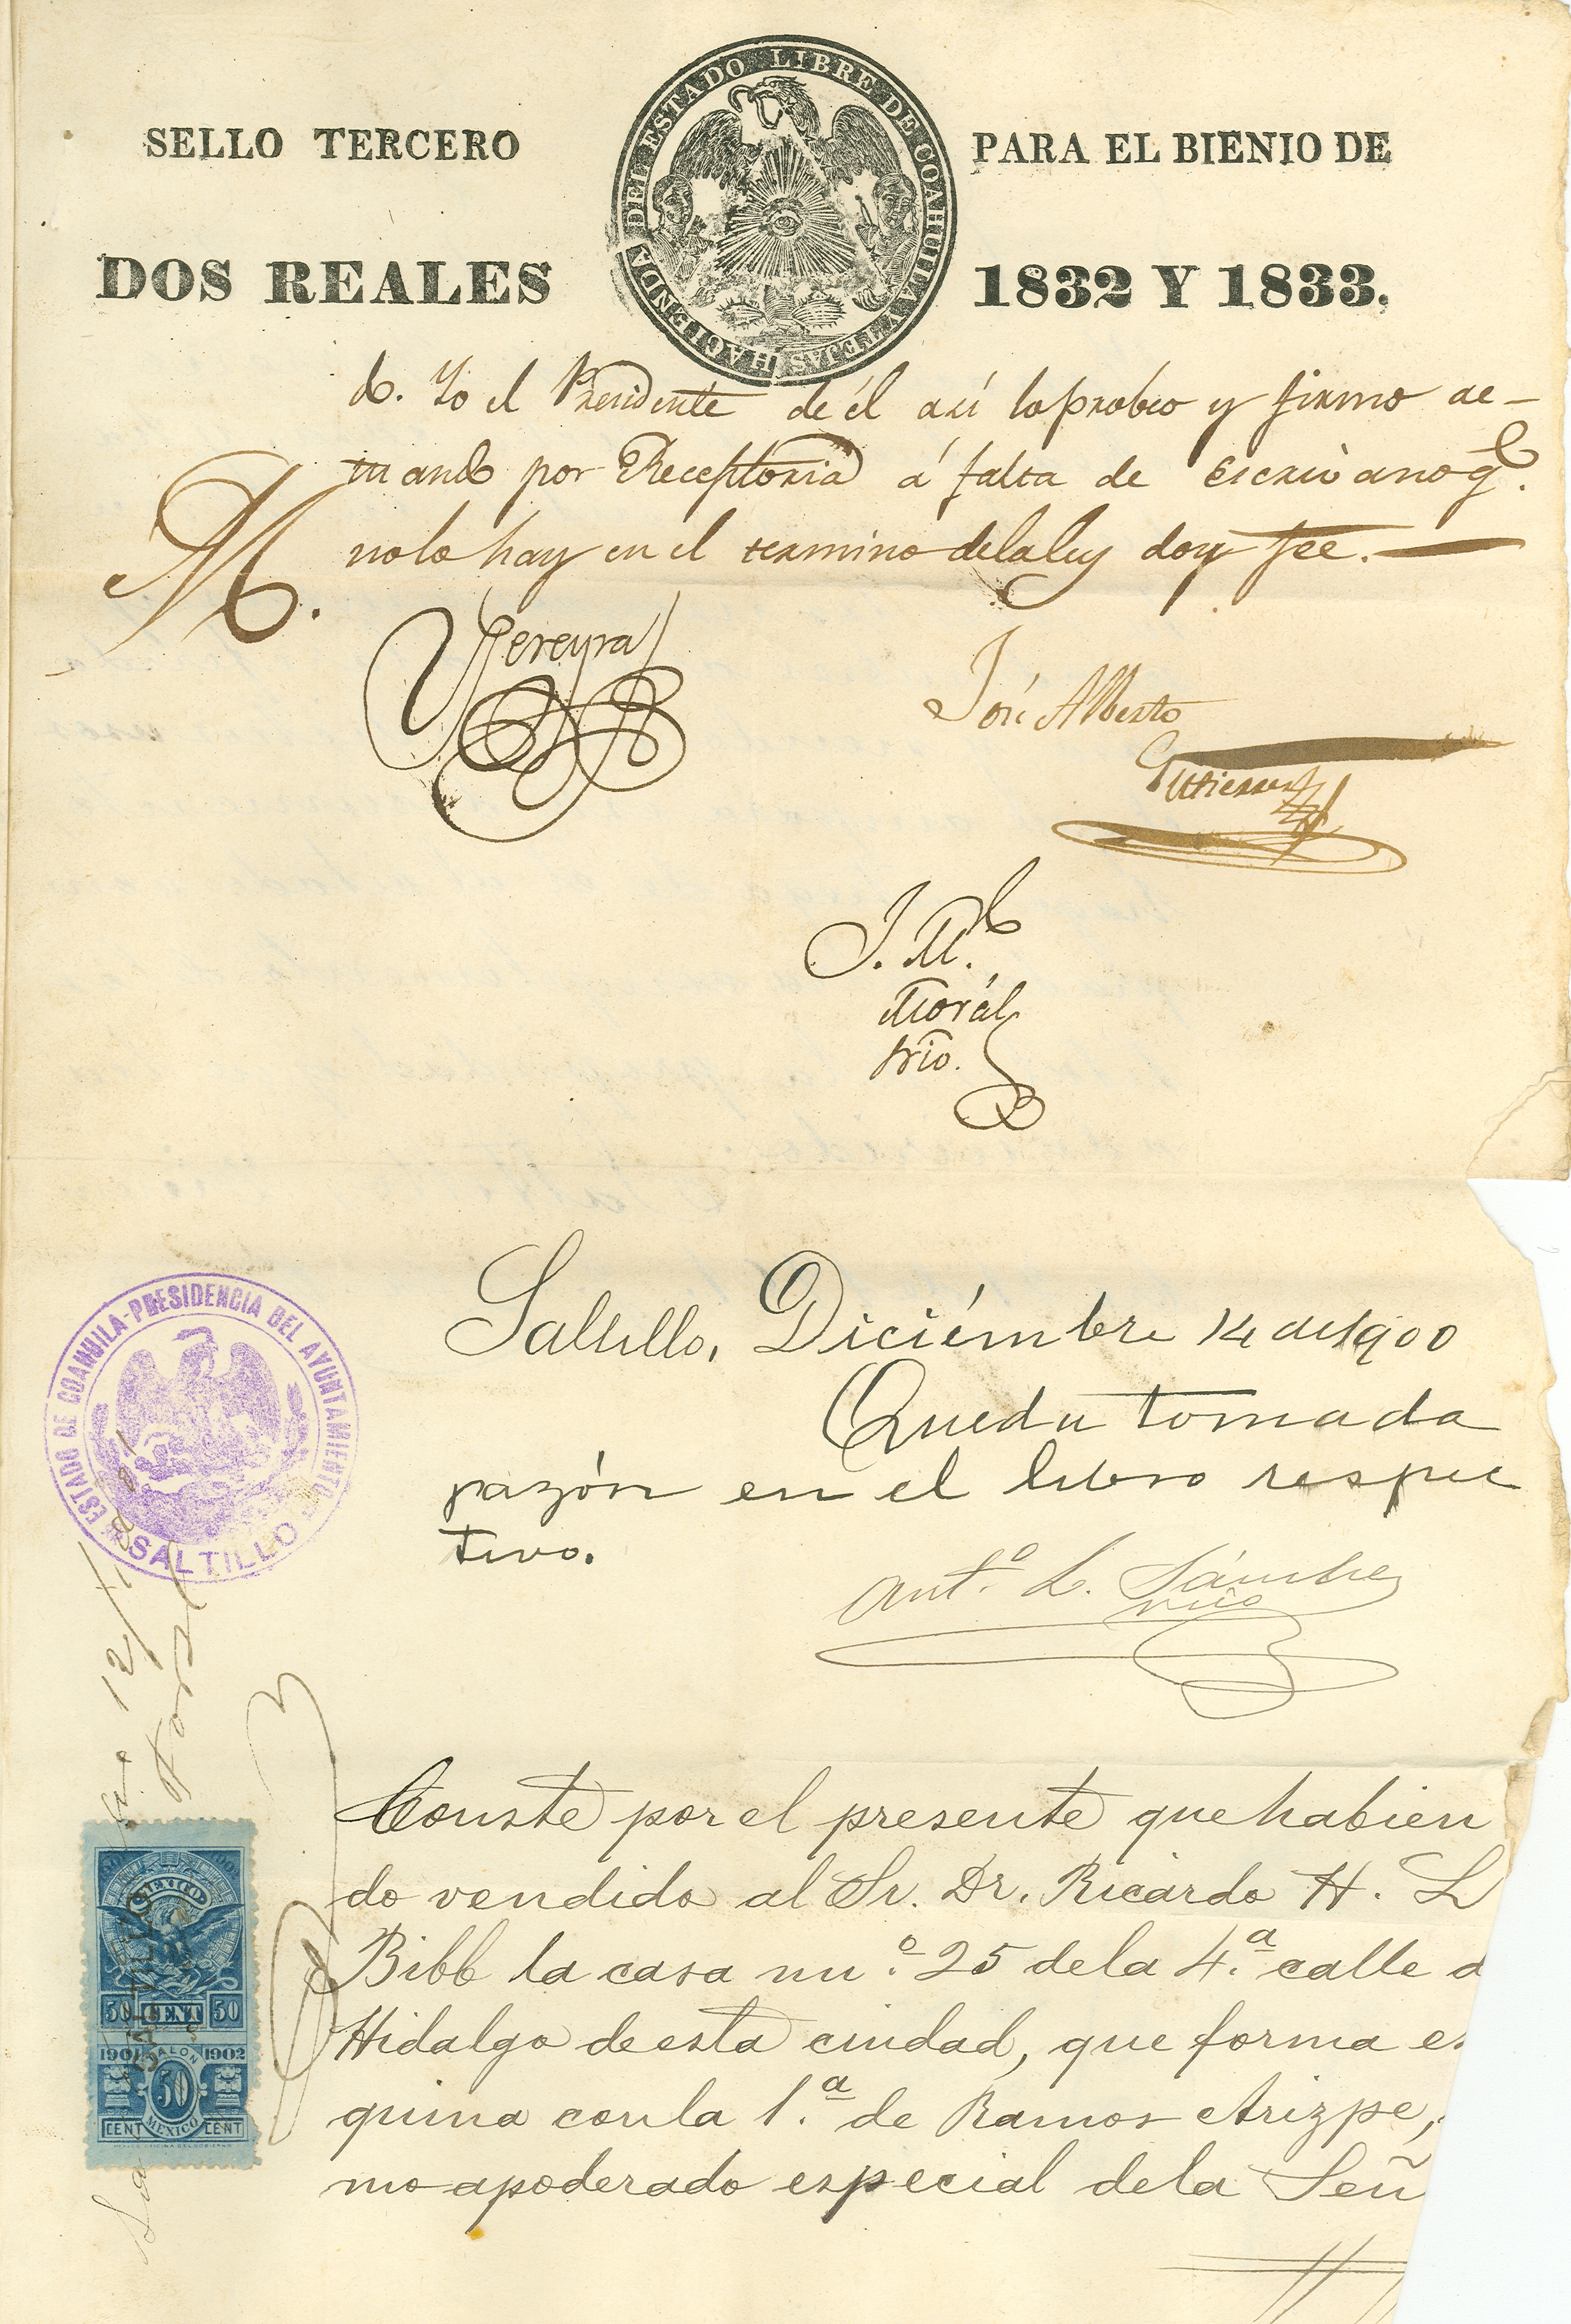 SELLO TERCERO
PARA EL BIENIO DE
DOS REALES
1832 Y 1833.
HACIENDA DEL ESTADO LIBRE DE COAHUILA Y TEJAS
do. Yo el Presidente de él así lo probeo y firmo ac-
tuando por Receptoria á falta de Escrivano q.e
no lo hay en el termino de la ley doy fee.
M.
Pereyra
José Alberto
Gutierrez
J. M.l
Morál
srio.
ESTADO DE COAHUILA-PRESIDENCIA DEL AYUNTAMIENTO
SALTILLO
Saltillo, Diciémbre 14 de 1900
Queda tomada
razón en el libro respec
tivo.
Ant.o L. Sánchez
srio
Conste por el presente que habien
do vendido al Sr. Dr. Ricardo H. L
Bibb la casa nu.o 25 de la 4.a calle d
Hidalgo de esta ciudad, que forma es
quina con la 1.a de Ramos Arizpe,
mo apoderado especial de la Señ
MEXICO
SALTILLO
50 CENT 50
1901 TALON 1902
50
CENT MEXICO CENT